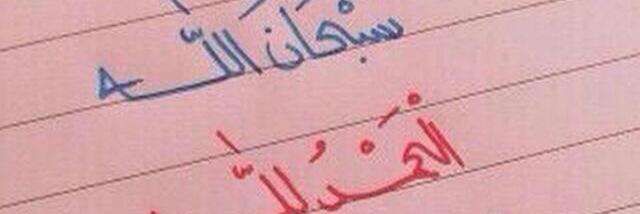 سبْحَانَ اللَّه
الْحَمْدُ للَّه